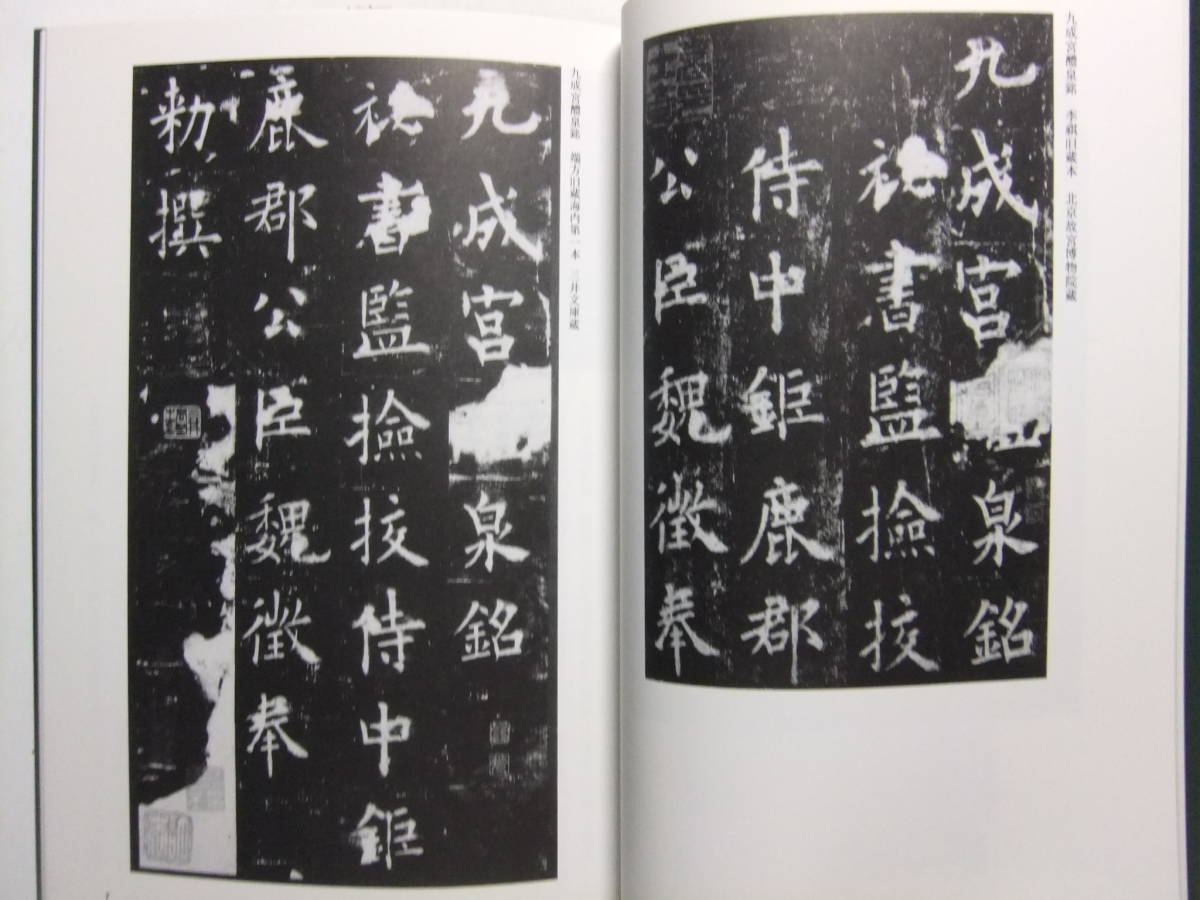 九成宮醴泉銘　李祺旧蔵本　北京故宮博物院蔵
九成宮泉銘
祕書監撿挍
侍中鉅鹿郡
公臣魏徵奉
九成宮醴泉銘　端方旧蔵海内第一本　三井文庫蔵
九成宮泉銘
祕書監撿挍侍中鉅
鹿郡公臣魏徵奉
勑撰